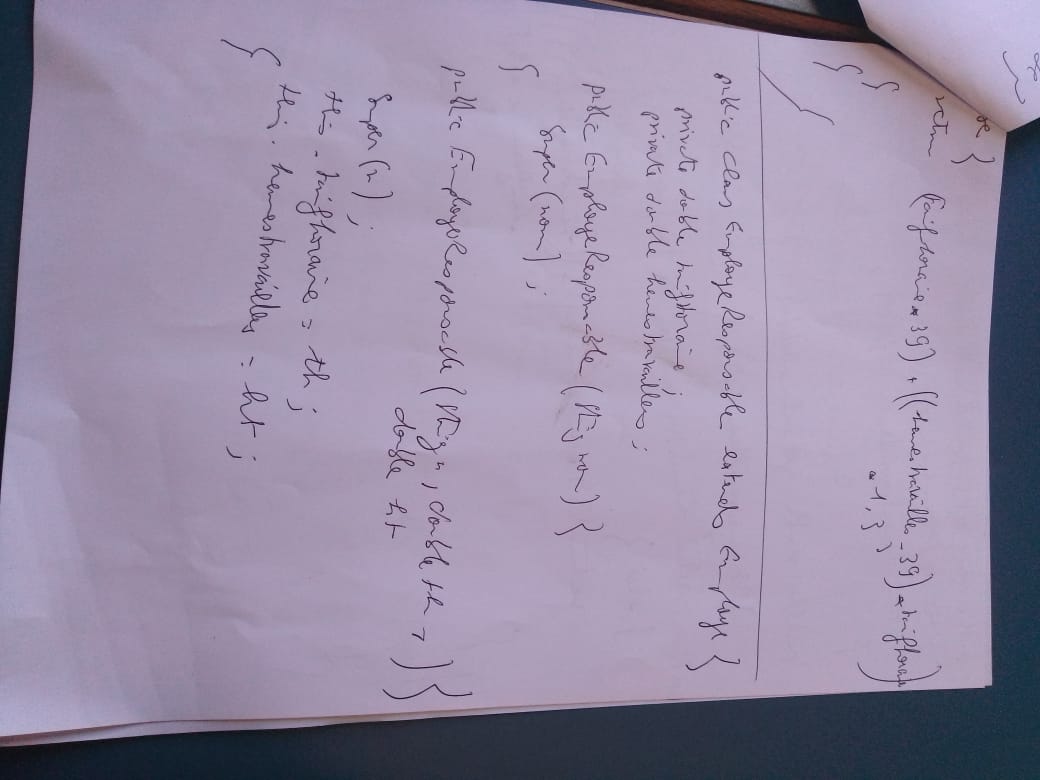 se {
return (tarifhoraire * 39) + ((heurestravailles - 39) * tarifhoraire
* 1,3)
}
}
public class EmployeResponsable extends Employe {
private double tarifHoraire ;
private double heurestravailles ;
public EmployeResponsable (String nom) {
Super (nom) ;
}
public EmployeResponsable (String n, double th ,
double ht ) {
Super (n) ;
this . tarifhoraire = th ;
this . heurestravailles = ht ;
}